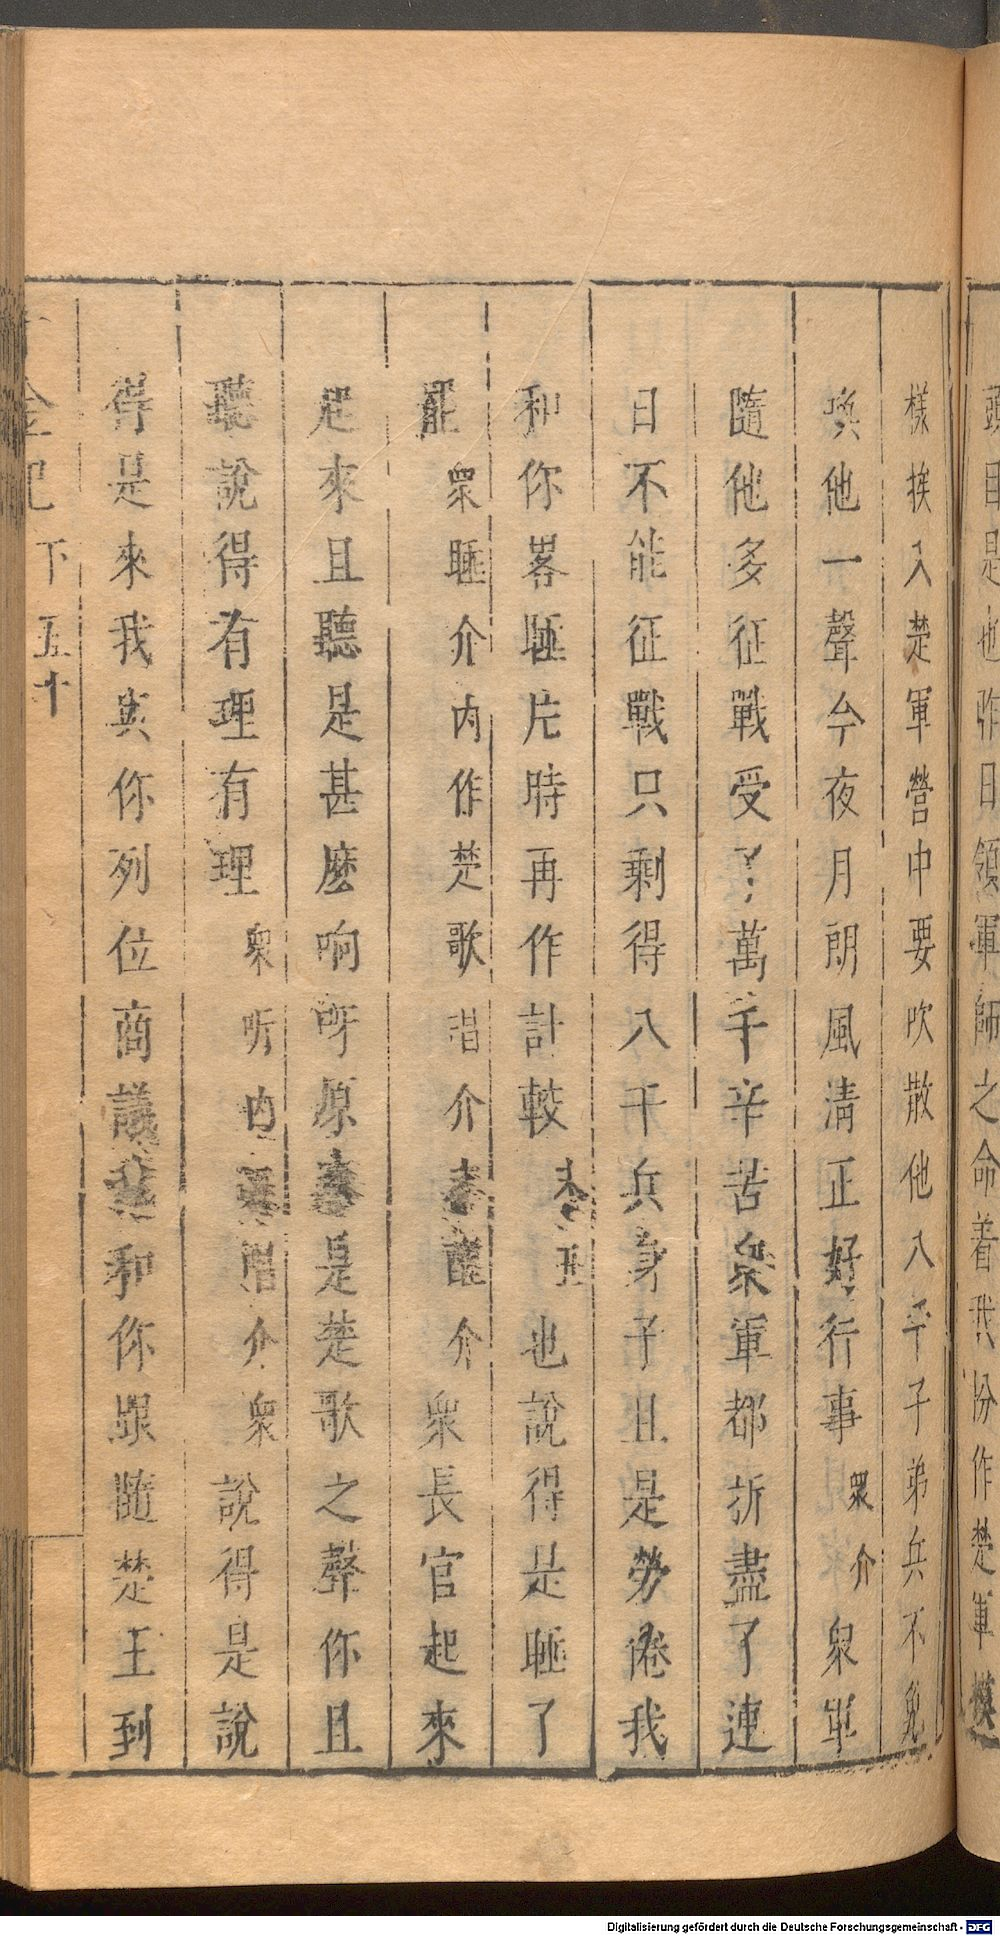 頭目是也昨日領軍師之命着我扮作楚軍模
樣挨入楚軍營中要吹散他八千子弟兵不免
喚他一聲今夜月朗風清正好行事 衆介 衆軍
隨他多征戰受了萬千辛苦衆軍都折盡了連
日不能征戰只剩得八千兵身子且是勞倦我
和你畧睡片時再作計較 末丑 也說得是睡了
罷 衆睡介内作楚歌唱介 醒介 衆長官起來
起來且聽是甚麽响呀原來是楚歌之聲你且
聽說得有理有理 衆听内唱介衆 說得是說
得是來我與你列位商議 和你跟隨楚王到
金記 下 五十
Digitalisierung gefördert durch die Deutsche Forschungsgemeinschaft - DFG